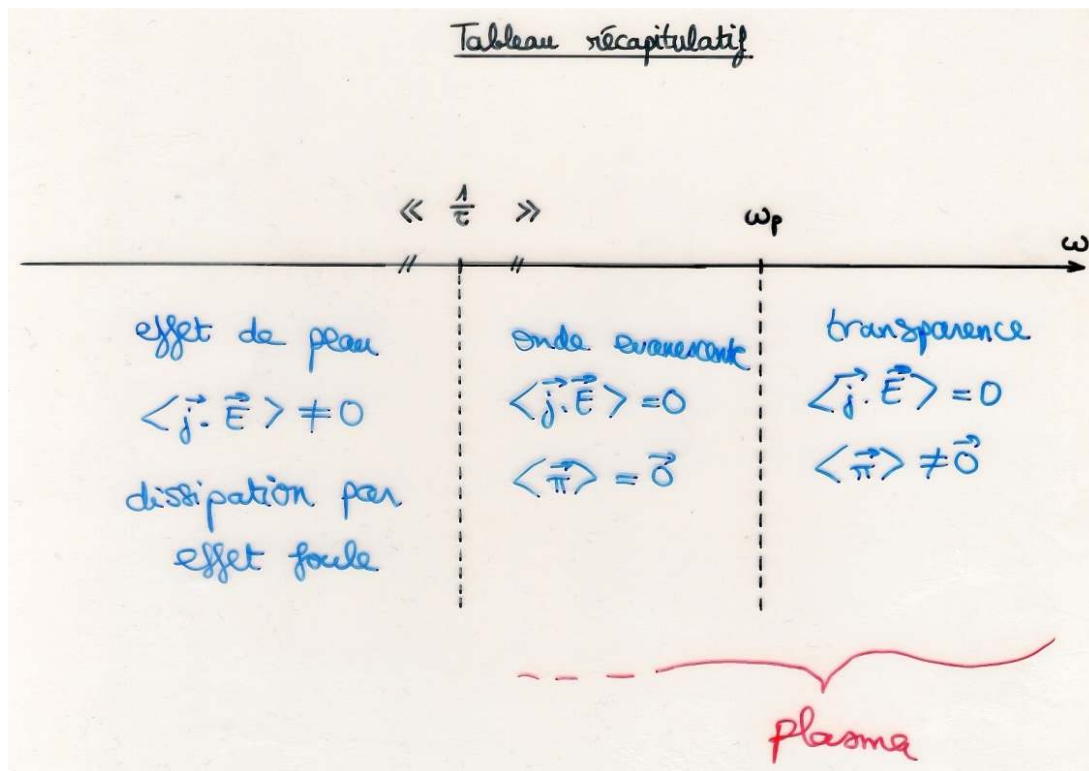 Tableau récapitulatif
≪ 1/τ ≫ ωₚ
ω
effet de peau
⟨j⃗·E⃗⟩ ≠ 0
dissipation par
effet Joule
onde evanescente
⟨j⃗·E⃗⟩ = 0
⟨π⃗⟩ = 0⃗
transparence
⟨j⃗·E⃗⟩ = 0
⟨π⃗⟩ ≠ 0⃗
plasma